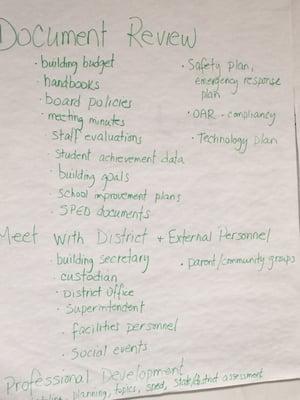 Document Review
· building budget
· handbooks
· board policies
· meeting minutes
· staff evaluations
· student achievement data
· building goals
· school improvement plans
· SPED documents
· Safety plan,
emergency response
plan
· OAR - compliancy
· Technology plan
Meet with District + External Personnel
· building secretary
· custodian
· District Office
· Superintendent
· facilities personnel
· Social events
· parent/community groups
Professional Development
planning, topics, sped, state/district assessment